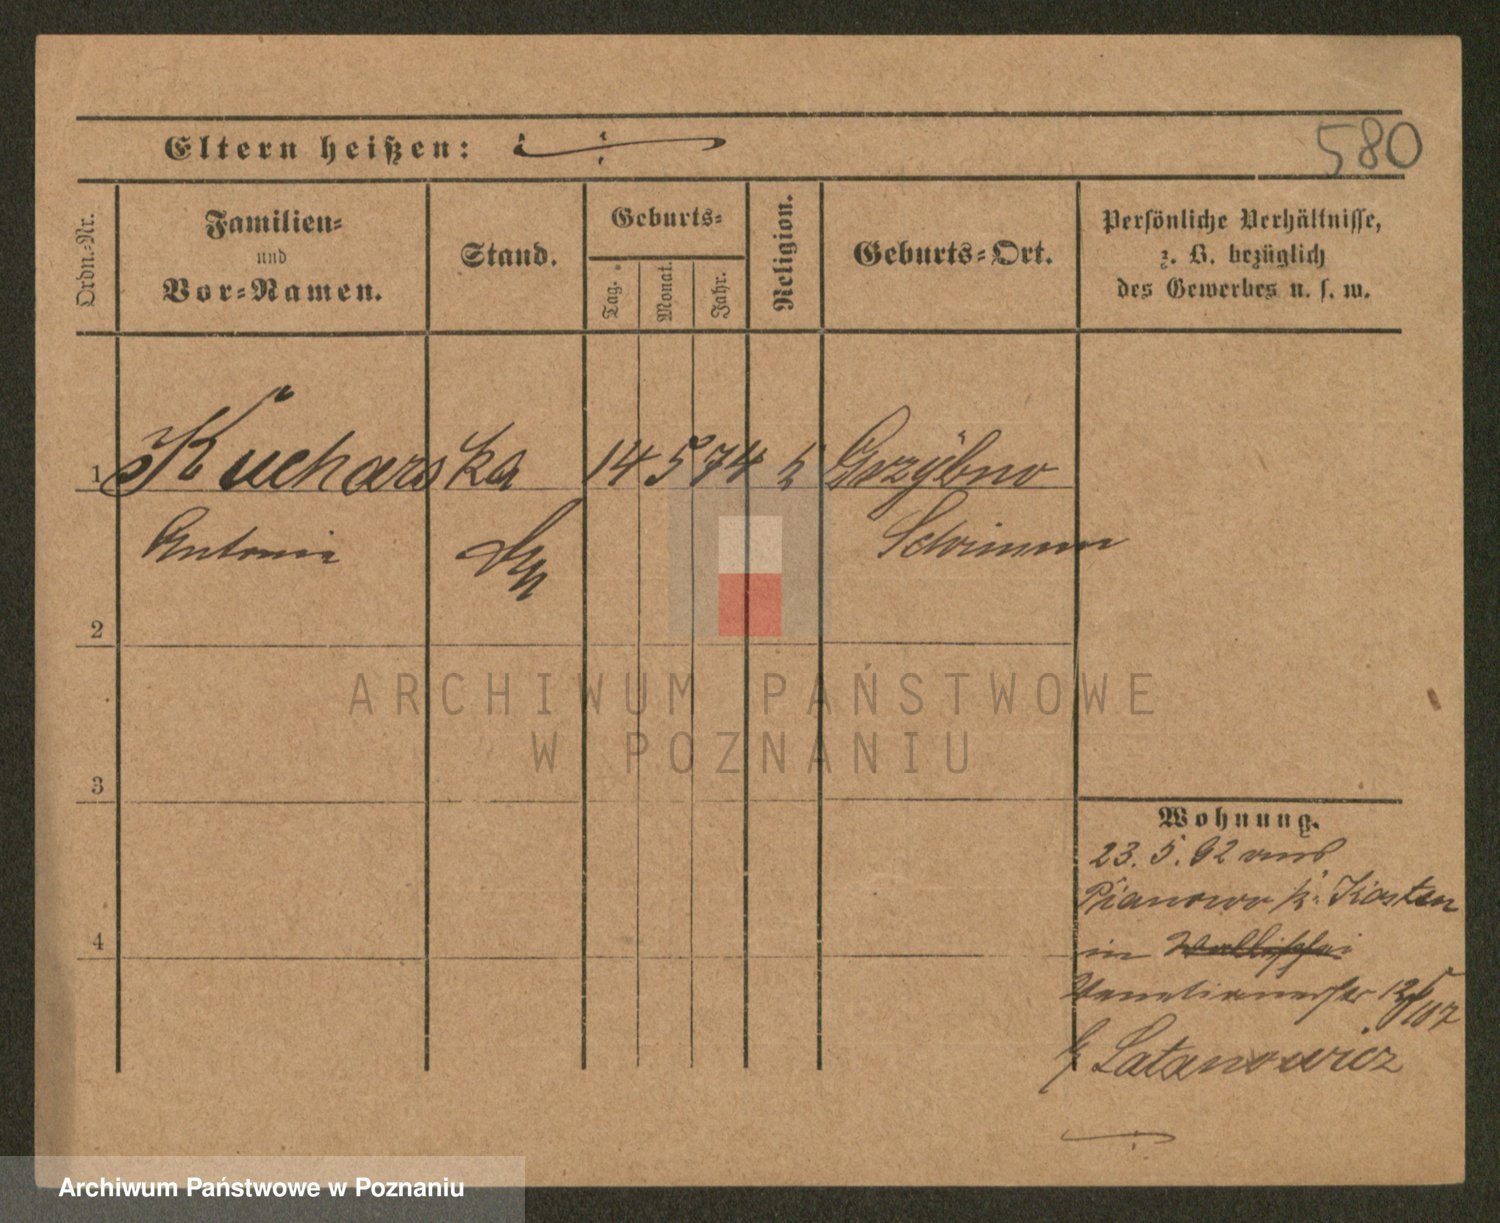 580
Eltern heißen:
Ordn.-Nr.
Familien-
und
Vor-Namen.
Stand.
Geburts-
Tag.
Monat.
Jahr.
Religion.
Geburts-Ort.
Persönliche Verhältnisse,
z. B. bezüglich
des Gewerbes u. s. w.
1 Kucharska 14 5 74 k Grzybno
Antonia Schrimm
2
3
4
ARCHIWUM PAŃSTWOWE
W POZNANIU
Wohnung.
23. 5. 92 aus
Pianowo k. Kosten
in Wallischei
Venetianerstr 12
b Latanowicz
Archiwum Państwowe w Poznaniu